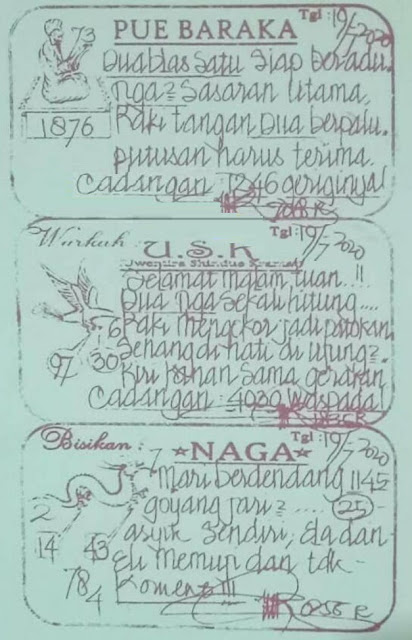 PUE BARAKA
Tgl: 19/7-2020
73
Duablas Satu Siap beradu.
nga² Sasaran Utama.
1876
Kaki tangan Dua berpalu.
putusan harus terima.
Cadangan : 1246 geriginya!
Wurkuh :
U.S.K
Tgl: 19/7-2020
Selamat malam tuan..!!
Dua nga Sekali hitung....
6
Kaki mengekor jadi patokan
97
30
Senang di hati di ujung².
Kiri Kanan Sama gerakan
Cadangan : 4030 Waspada!
Bisikan :
★NAGA★
Tgl: 19/7-2020
7
Mari berdendang 1145
goyang jari² .... 25
2
asyik Sendiri, Ela dan
14
43
Eli Memuji dan tdk-
78
4
Koment !!!
0256 R